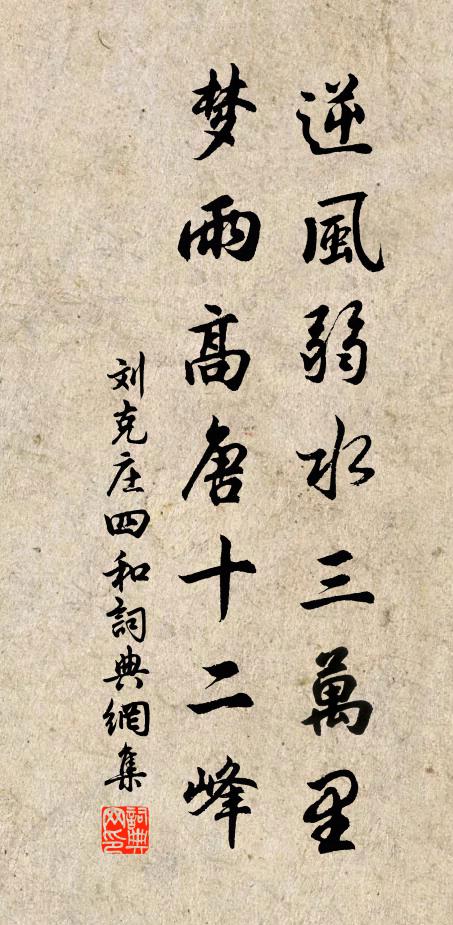 逆風弱水三萬里
梦雨高唐十二峰
刘克庄四和詞典網集
詞典网印